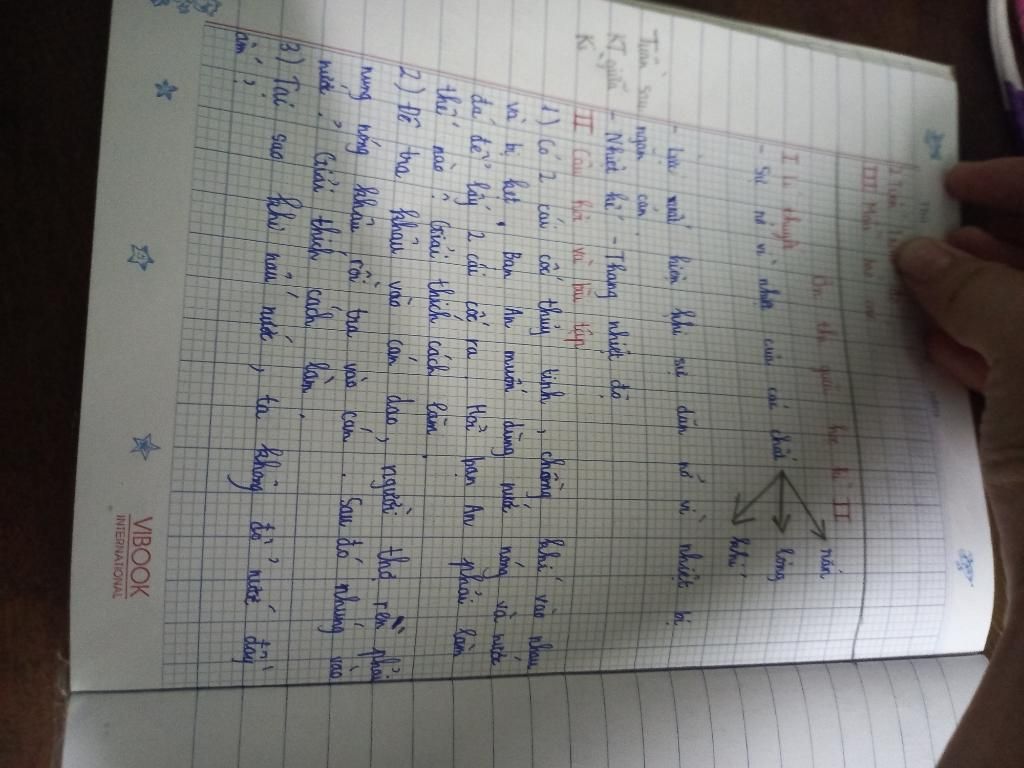 III
Ôn thi giữa học kì II
I Lí thuyết
- Sự nở vì nhiệt của các chất
rắn
lỏng
khí
- Lực xuất hiện khi sự dãn nở vì nhiệt bị
ngăn cản.
Tuần sau
KT giữa
Kì
- Nhiệt kế - Thang nhiệt độ
II Câu hỏi và bài tập
1) Có 2 cái cốc thủy tinh, chồng khít vào nhau
và bị kẹt. Bạn An muốn dùng nước nóng và nước
đá để lấy 2 cái cốc ra. Hỏi bạn An phải làm
thế nào? Giải thích cách làm.
2) Để tra khâu vào cán dao, người thợ rèn phải
nung nóng khâu rồi tra vào cán. Sau đó nhúng vào
nước? Giải thích cách làm.
3) Tại sao khi nấu nước, ta không đổ nước đầy
ấm?
VIBOOK
INTERNATIONAL